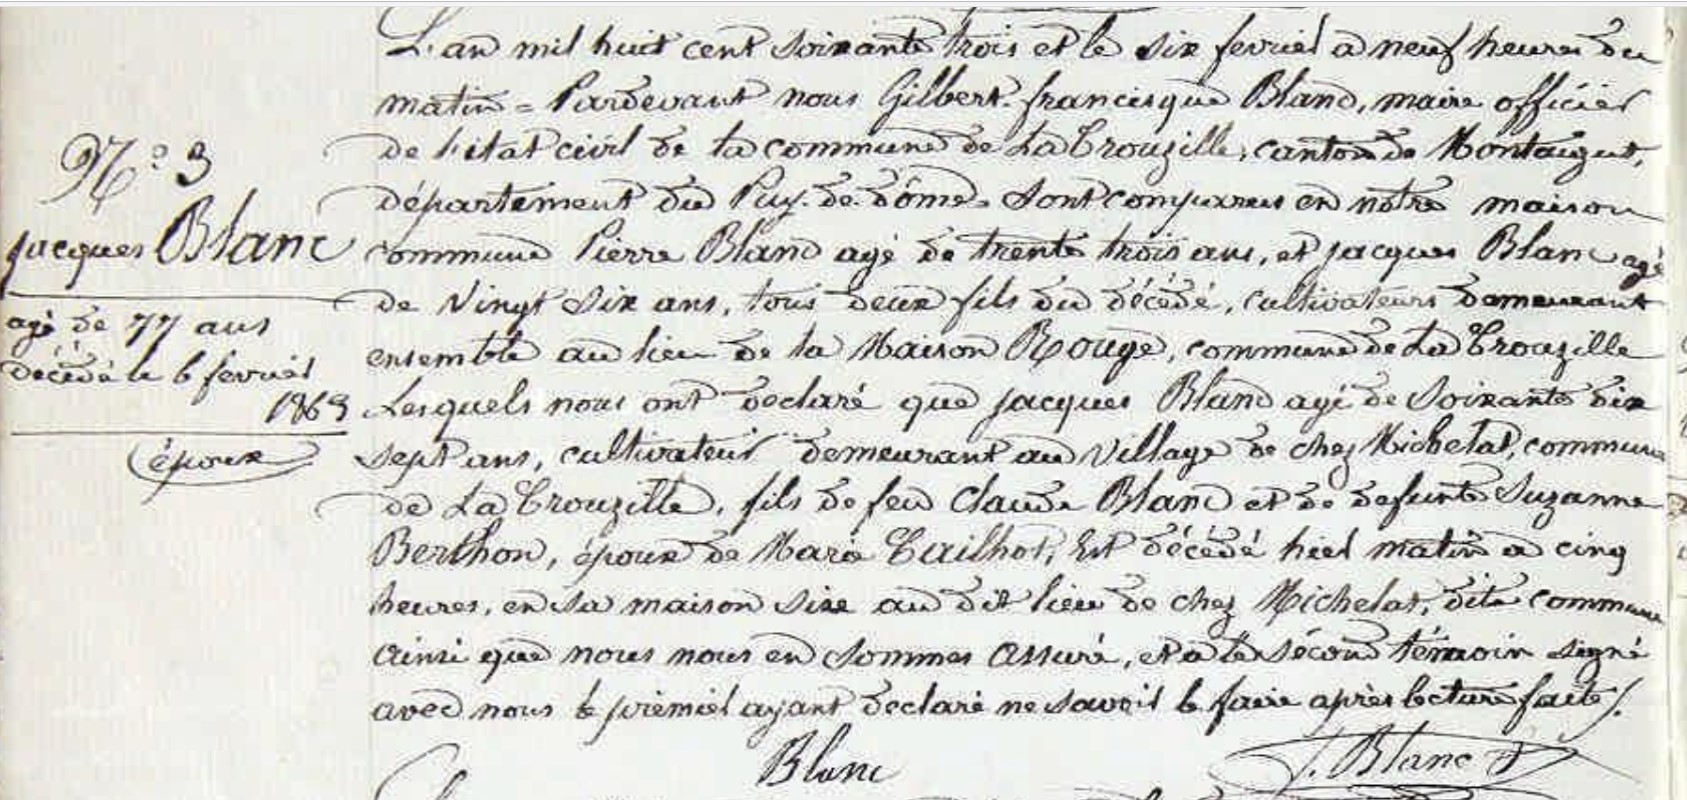 L'an mil huit cent soixante trois et le six fevrier a neuf heures du
matin = Pardevant nous Gilbert francisque Blanc, maire officier
de l'état civil de la commune de La Crouzille, canton de Montaigut,
département du Puy-de-dôme. Sont comparus en notre maison
commune Pierre Blanc agé de trente trois ans, et jacques Blanc agé
de Vingt six ans, tous deux fils du décédé, cultivateurs demeurant
ensemble au lieu de la Maison Rouge, commune de La Crouzille
Lesquels nous ont declaré que jacques Blanc agé de Soixante dix
sept ans, cultivateur demeurant au Village de chez Michelat, commune
de La Crouzille, fils de feu Claude Blanc et de defunte Suzanne
Berthon, époux de Marie Tailhot, Est décédé hier matin a cinq
heures, en sa maison sise au dit lieu de chez Michelat, dite commune
Ainsi que nous nous en sommes Assuré, et a le sécond témoin signé
avec nous le premier ayant declaré ne savoir le faire après lecture faite /.
Blanc
J. Blanc
N.º 3
jacques Blanc
agé de 77 ans
décédé le 6 fevrier
1863
époux